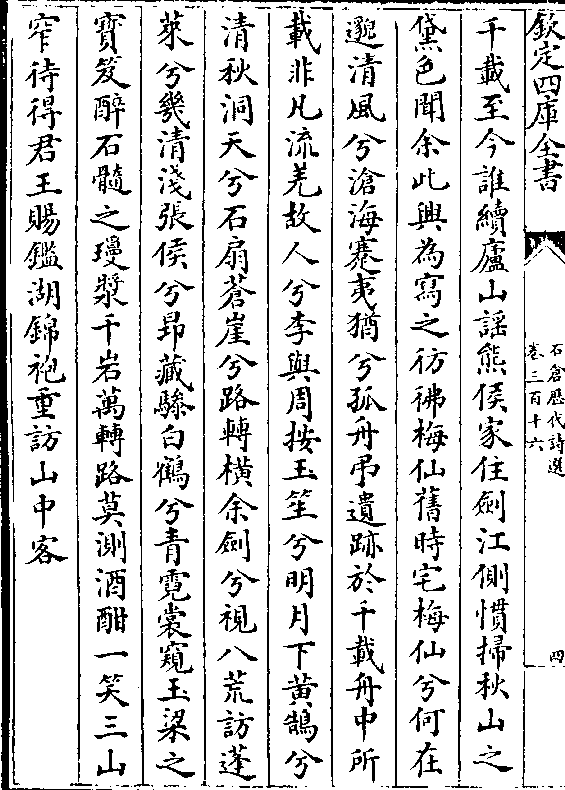 欽定四庫全書
石倉歷代詩選
卷三百十六
四
千載至今誰續廬山謡熊侯家住劍江側慣掃秋山之
黛色聞余此興為寫之彷彿梅仙舊時宅梅仙兮何在
邈清風兮滄海蹇夷猶兮孤舟弔遺跡於千載舟中所
載非凡流羌故人兮李與周按玉笙兮明月下黄鵠兮
清秋洞天兮石扇蒼崖兮路轉横余劍兮視八荒訪蓬
萊兮幾清淺張侯兮昻藏驂白鶴兮青霓裳窺玉梁之
寶笈醉石髓之瓊漿千岩萬轉路莫測酒酣一笑三山
窄待得君王賜鑑湖錦袍重訪山中客